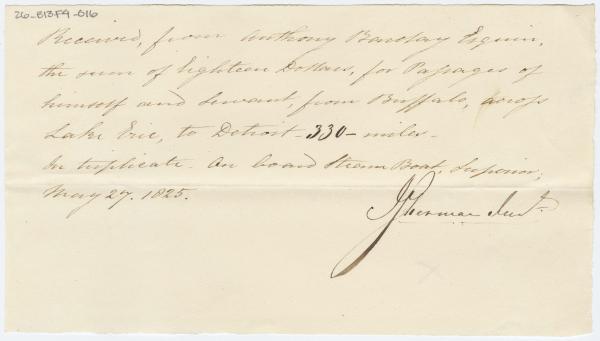 26-B13F9-016
Received, from Anthony Barclay Esquire,
the sum of Eighteen Dollars, for Passages of
himself and Servant, from Buffalo, across
Lake Erie, to Detroit - 330 - miles -
In triplicate. On board Steam Boat, Superior,
May 27. 1825.
Sherman